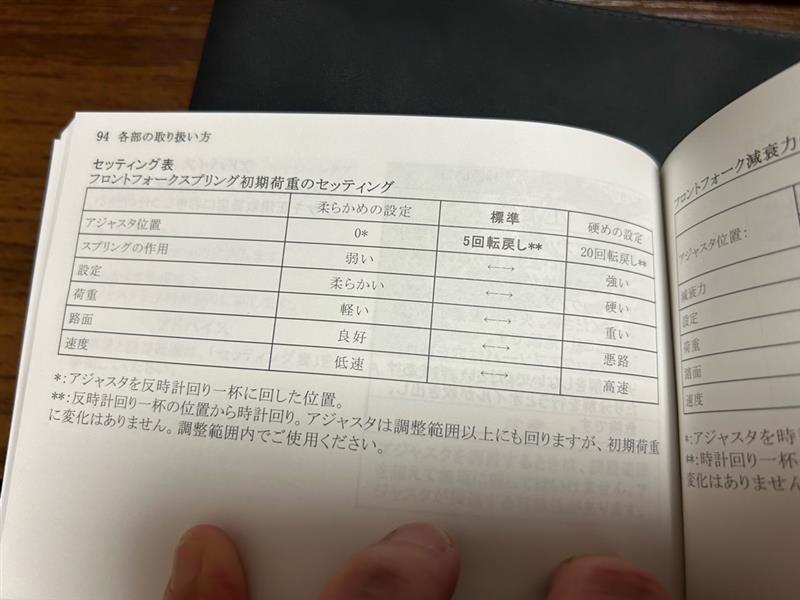 94 各部の取り扱い方
セッティング表
フロントフォークスプリング初期荷重のセッティング
柔らかめの設定 標準 硬めの設定
アジャスタ位置 0* 5回転戻し** 20回転戻し**
スプリングの作用 弱い ←→ 強い
設定 柔らかい ←→ 硬い
荷重 軽い ←→ 重い
路面 良好 ←→ 悪路
速度 低速 ←→ 高速
*:アジャスタを反時計回り一杯に回した位置。
**:反時計回り一杯の位置から時計回り。アジャスタは調整範囲以上にも回りますが、初期荷重
に変化はありません。調整範囲内でご使用ください。
フロントフォーク減衰力
アジャスタ位置:
減衰力
設定
荷重
路面
速度
*:アジャスタを時
**:時計回り一杯
変化はありません